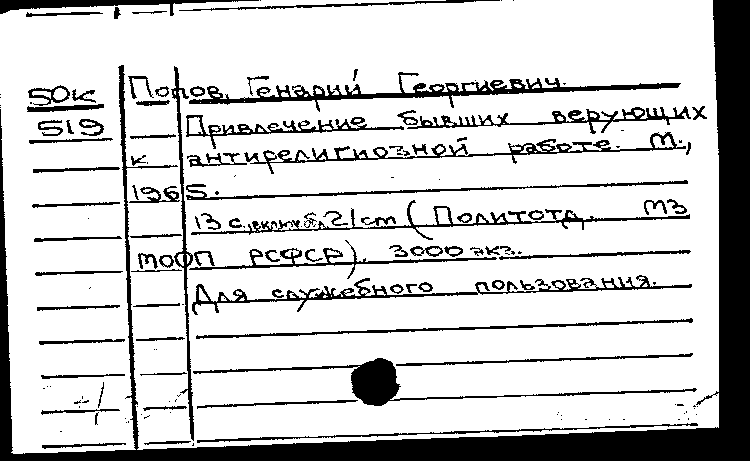 50к Попов, Генарий Георгиевич.
519 Привлечение бывших верующих
к антирелигиозной работе. М.,
1965.
13 с., включ. обл. 21 cm (Политотд. МЗ
МООП РСФСР). 3000 экз.
Для служебного пользования.